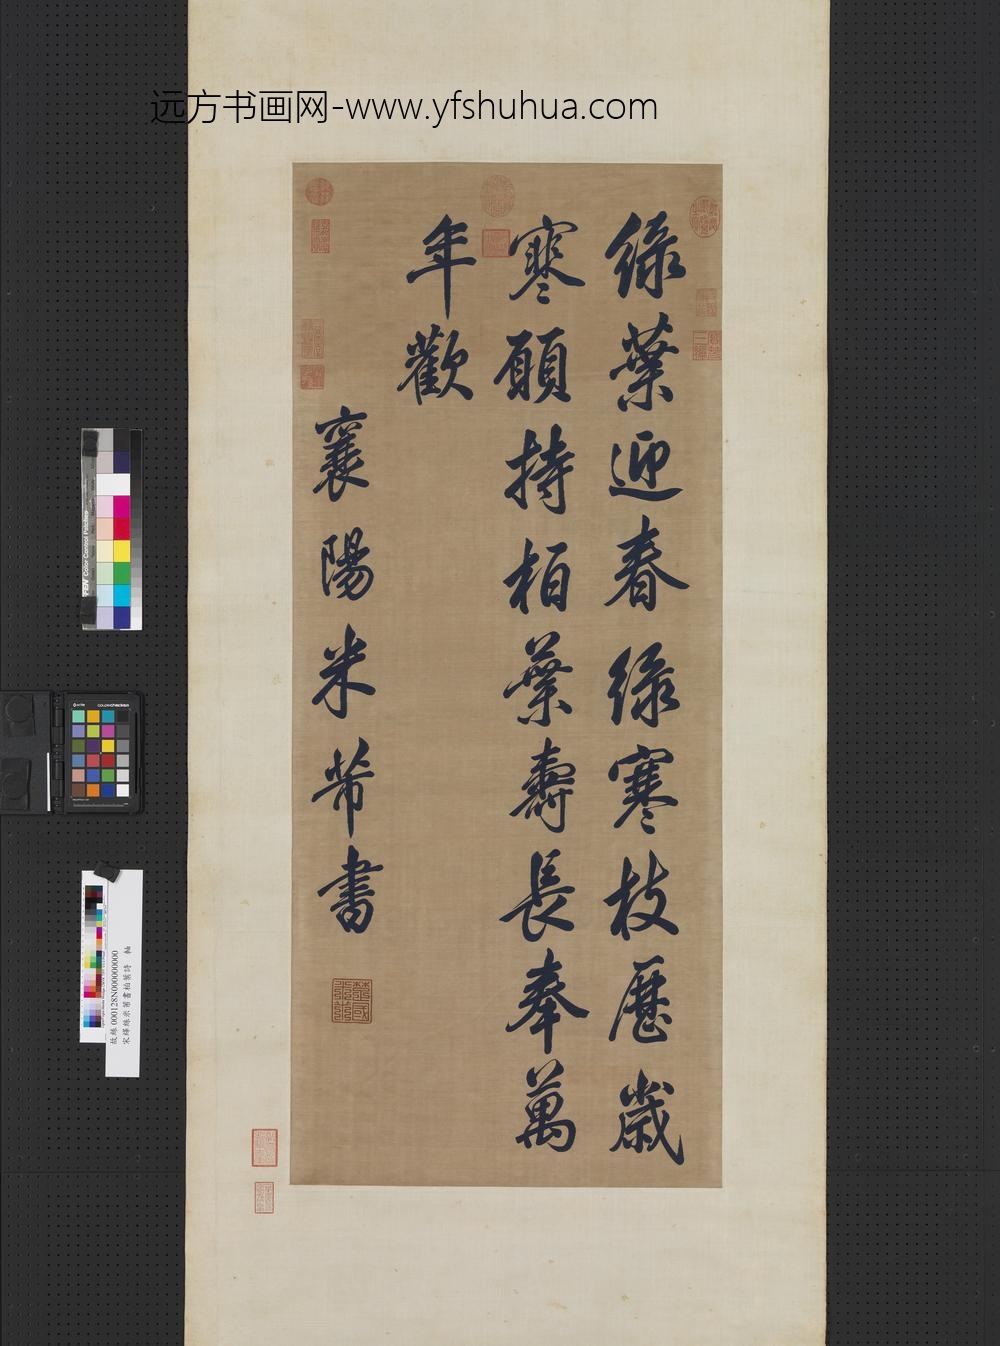 远方书画网-www.yfshuhua.com
綠葉迎春綠寒枝歷歲
寒願持柏葉壽長奉萬
年歡
襄陽米芾書
故絲000128N000000000
宋緙絲米芾書柏葉詩 軸